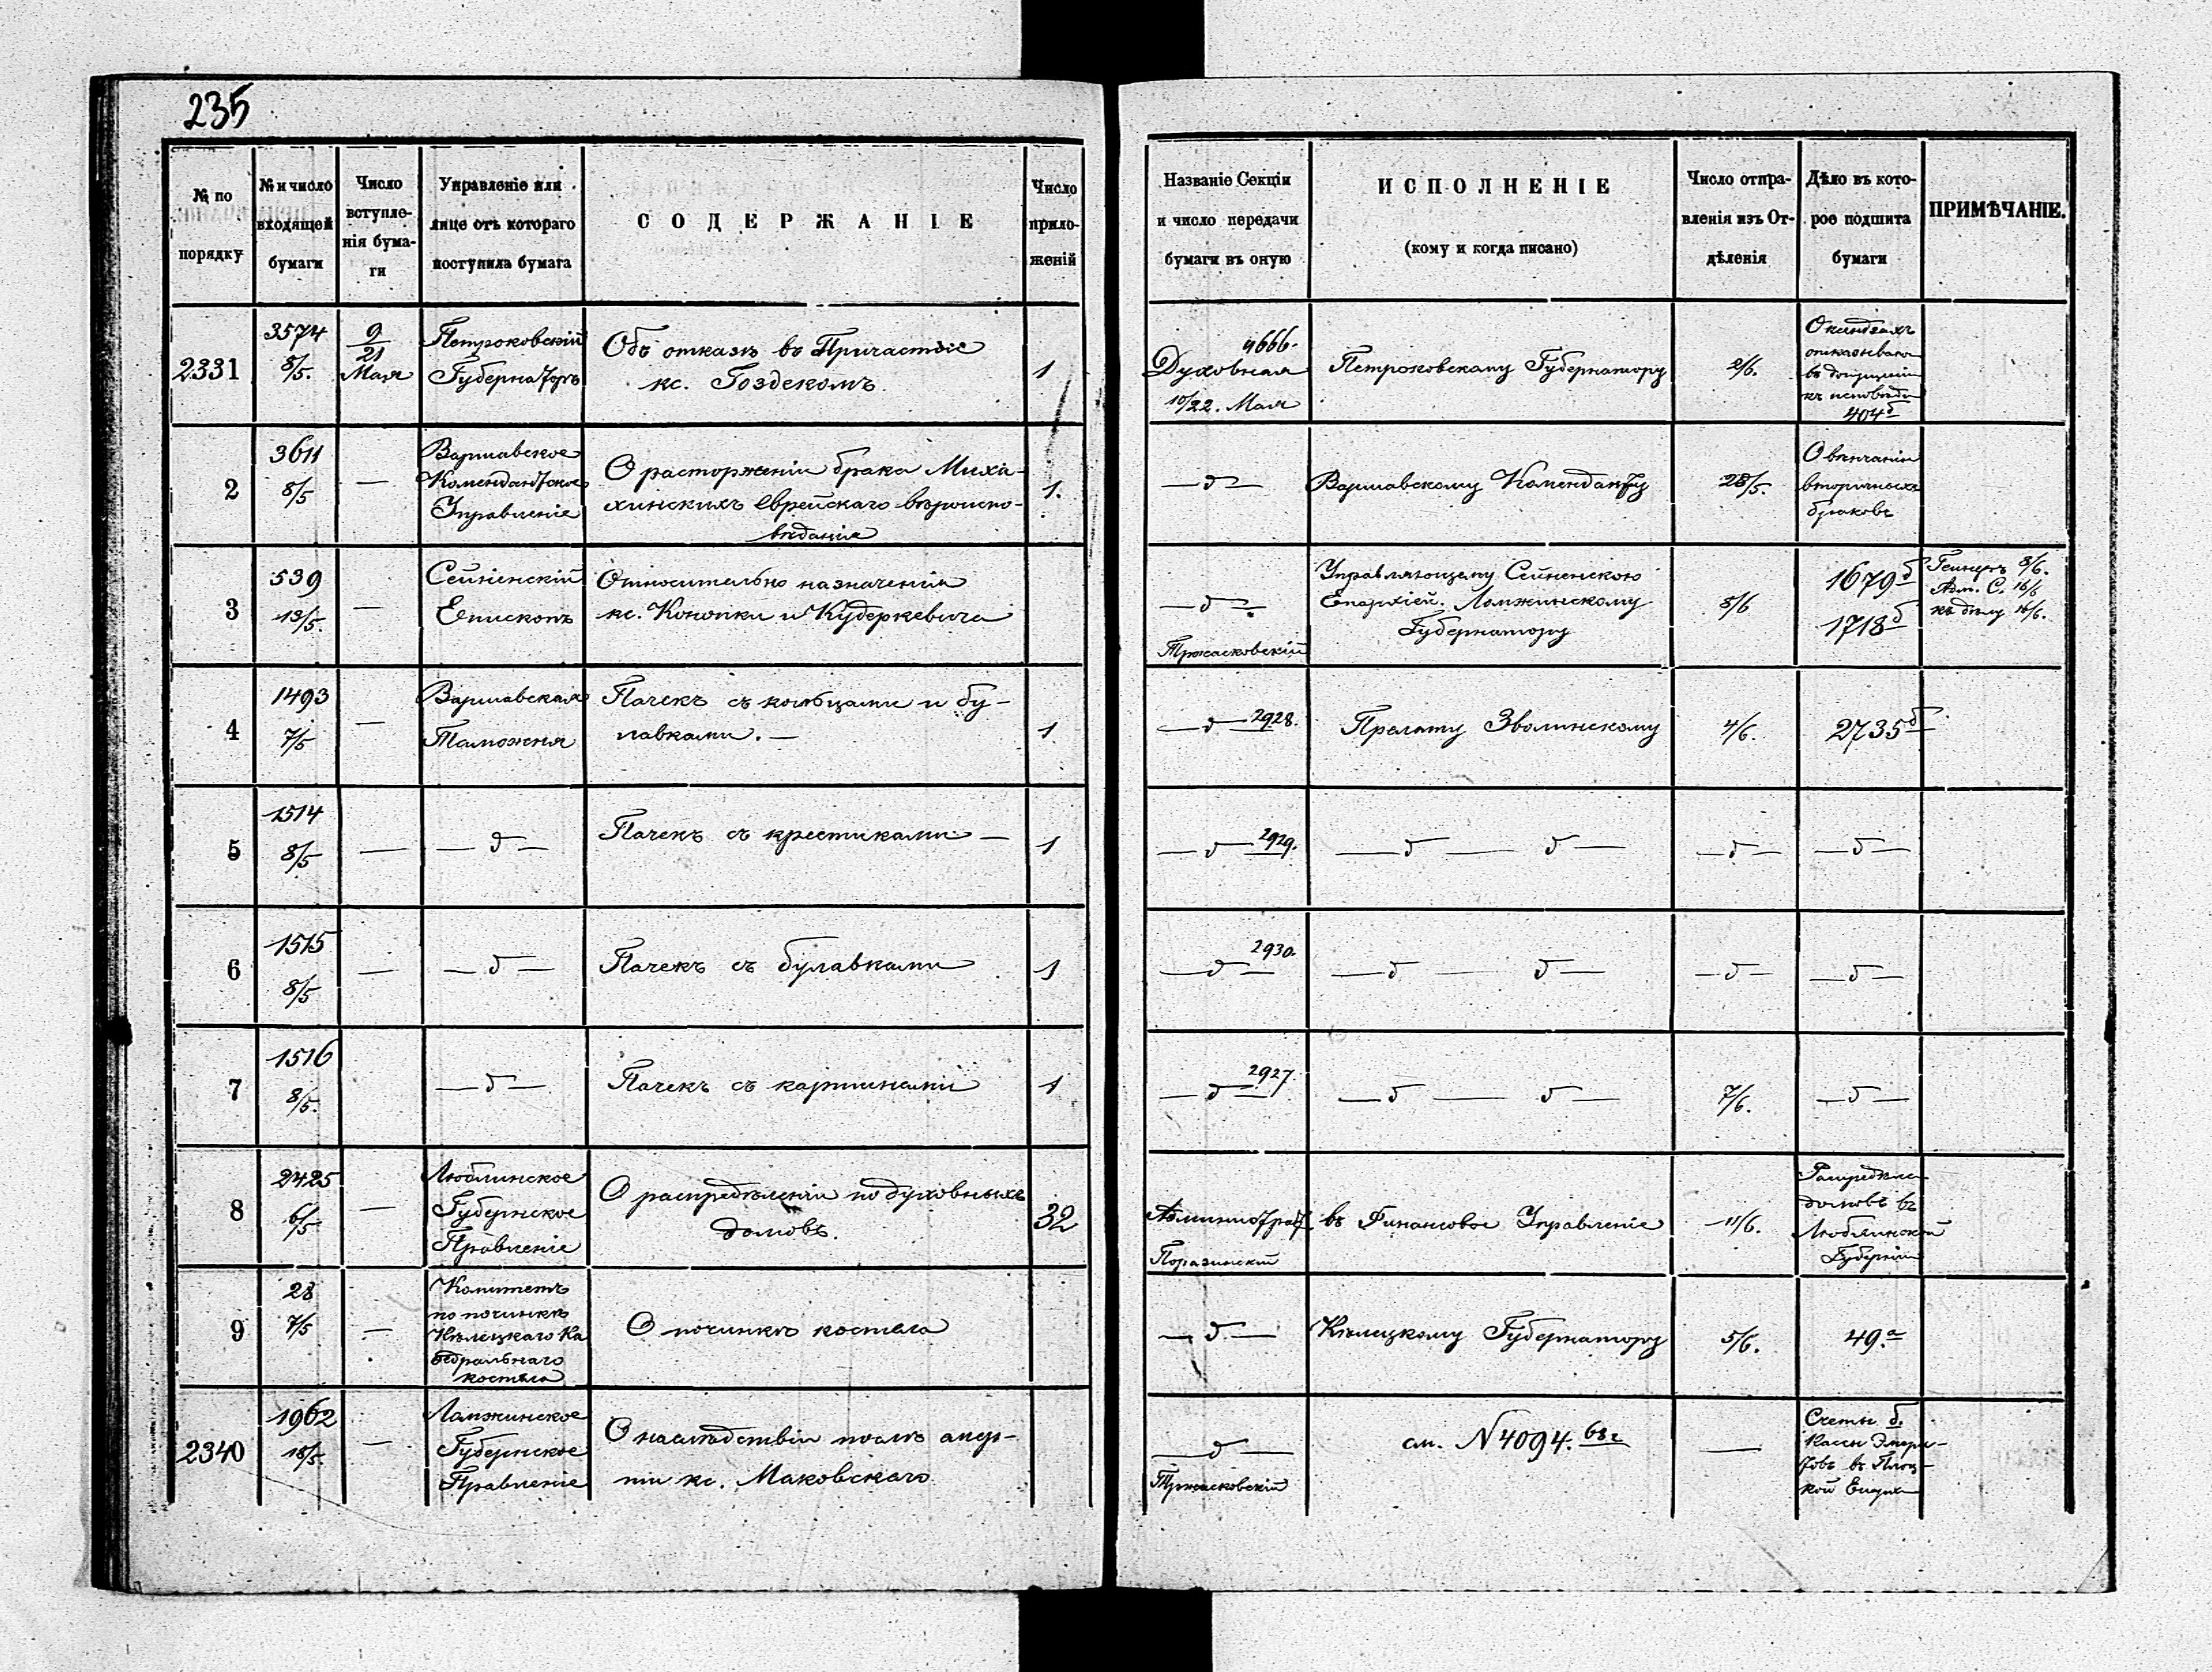 235
№ по
порядку
№ и число
входящей
бумаги
Число
вступле-
нія бума-
ги
Управленіе или
лице отъ котораго
поступила бумага
СОДЕРЖАНІЕ
Число
прило-
женій
Названіе Секціи
и число передачи
бумаги въ оную
ИСПОЛНЕНІЕ
(кому и когда писано)
Число отпра-
вленія изъ От-
дѣленія
Дѣло въ кото-
рое подшита
бумаги
ПРИМѢЧАНІЕ.
2331
3574
8/5.
9
21
Мая
Петроковскій
Губернаторъ
Объ отказѣ въ Причастіе
кс. Гоздекомъ.
1
4666.
Духовная
10/22. Мая
Петроковскому Губернатору
2/6.
О ксендзахъ
въ
къ исповѣди
404 б
2
3611
8/5
—
Варшавское
Комендантское
Управленіе
О расторженіи брака Миха-
хинскихъ Еврейскаго вѣроиспо-
вѣданія
1.
— д —
Варшавскому Коменданту
28/5.
О вѣнчаніи
вторичныхъ
браковъ
3
539
13/5.
—
Сейненскій
Епископъ
Относительно назначенія
кс. Конопки и Кудеркевича
— д —
Тржасковскій
Управляющему Сейненскою
Епархіей. Ломжинскому
Губернатору
8/6
1679 б
1718 б
8/6.
Адм. С. 16/6
къ дѣлу 16/6.
4
1493
7/5
—
Варшавская
Таможня
Пачекъ съ кольцами и бу-
лавками. —
1
— д — 2928.
Прелату Зволинскому
4/6.
2735 б
5
1514
8/5
—
— д —
Пачекъ съ крестиками —
1
— д — 2929.
— д — д —
— д —
— д —
6
1515
8/5
—
— д —
Пачекъ съ булавками
1
— д — 2930.
— д — д —
— д —
— д —
7
1516
8/5.
— д —
Пачекъ съ картинами
1
— д — 2927.
— д — д —
7/6.
— д —
8
2425
6/5
—
Люблинское
Губернское
Правленіе
О распредѣленіи подуховныхъ
домовъ.
32
Поразинскій
въ Финансовое Управленіе
11/6.
домовъ въ
Люблинской
Губерніи
9
28
7/5
—
Комитетъ
по починкѣ
Кѣлецкаго Ка
ѳедральнаго
костела
О починкѣ костела
— д —
Кѣлецкому Губернатору
5/6.
49. а
2340
1962
18/5.
—
Ломжинское
Губернское
Правленіе
О наслѣдствіи послѣ смер-
ти кс. Маковскаго
— д —
Тржасковскій
см. N 4094. 68 г
—
Счеты б.
Кассы Эмери-
товъ въ Плоц-
кой Епарх